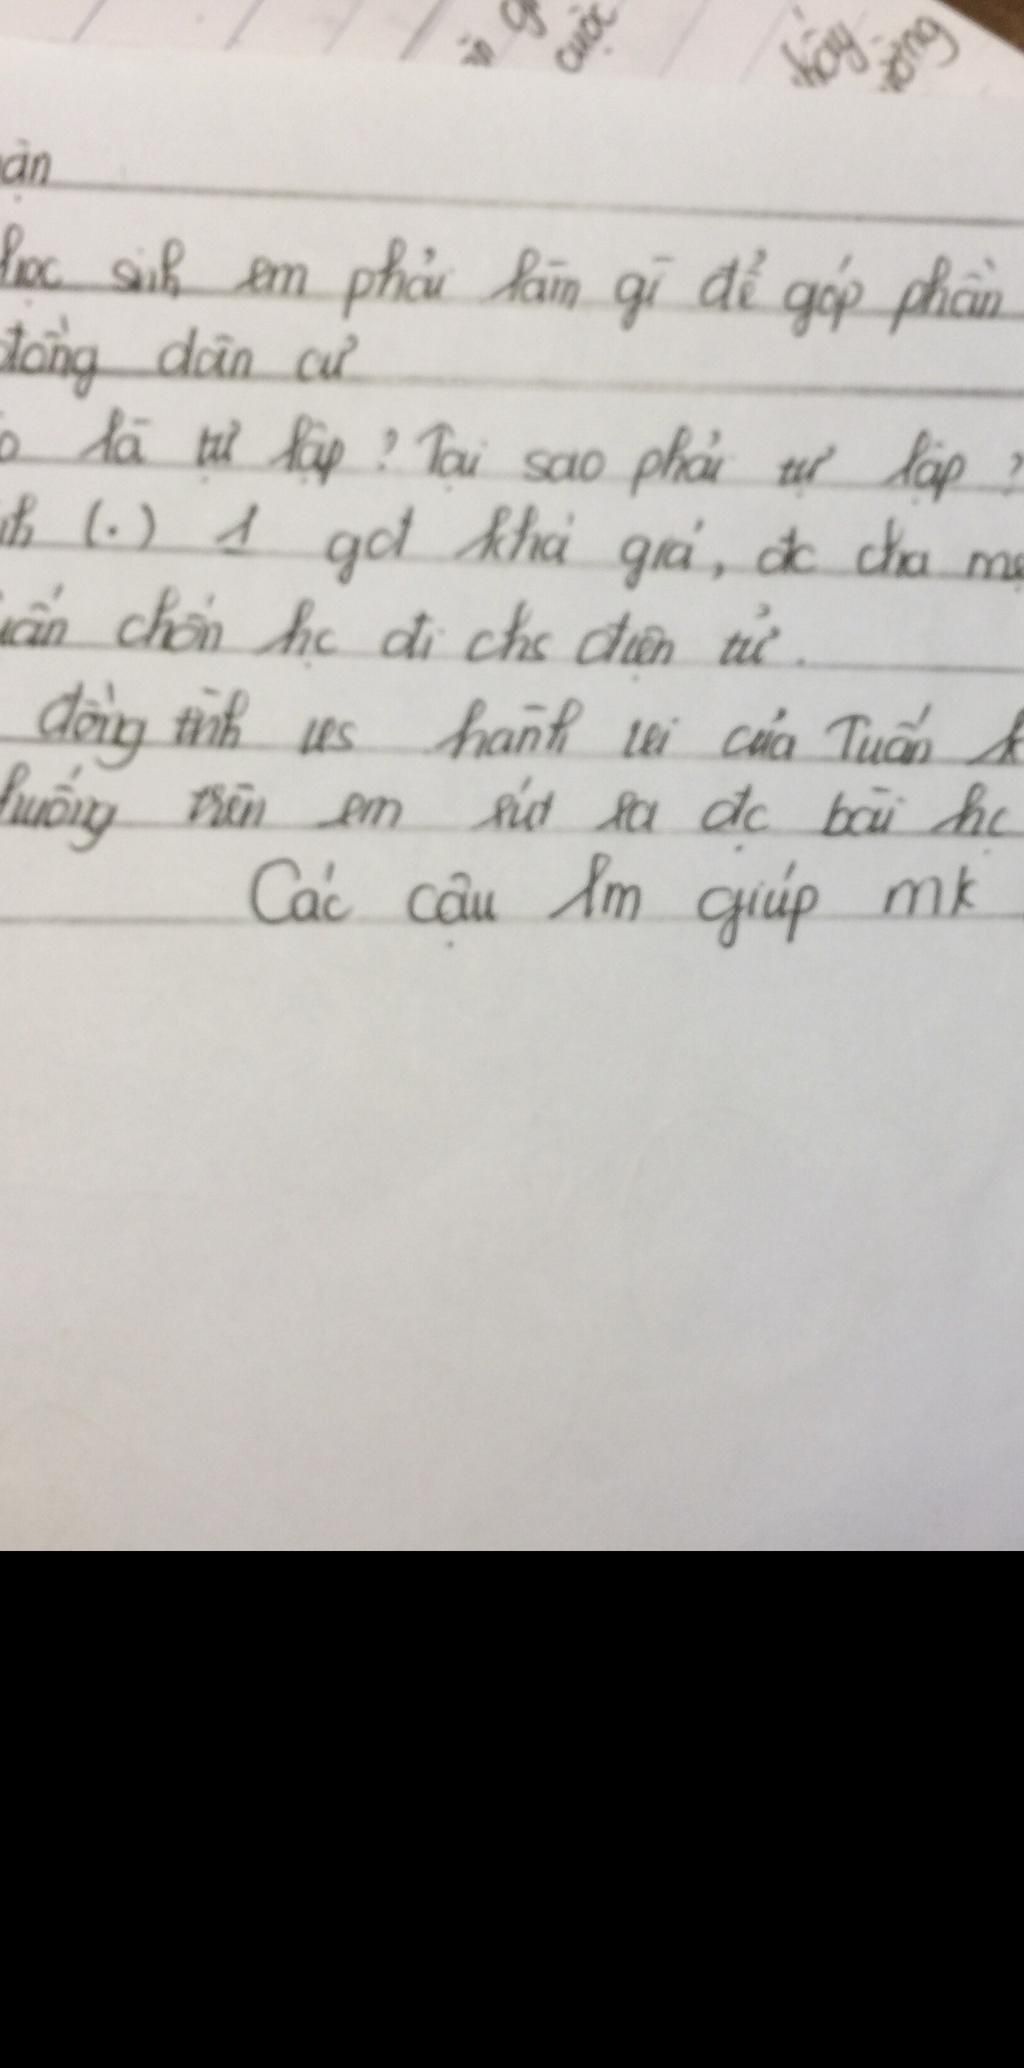 cuộc
học sinh em phải làm gì để góp phần
đồng dân cư
là tự lập? Tại sao phải tự lập?
(.) 1 gđ khá giả, đc cha mẹ
chốn hc đi chs điện tử.
đồng tình vs hành vi của Tuấn k
huống trên em rút ra đc bài hc
Các cậu lm giúp mk